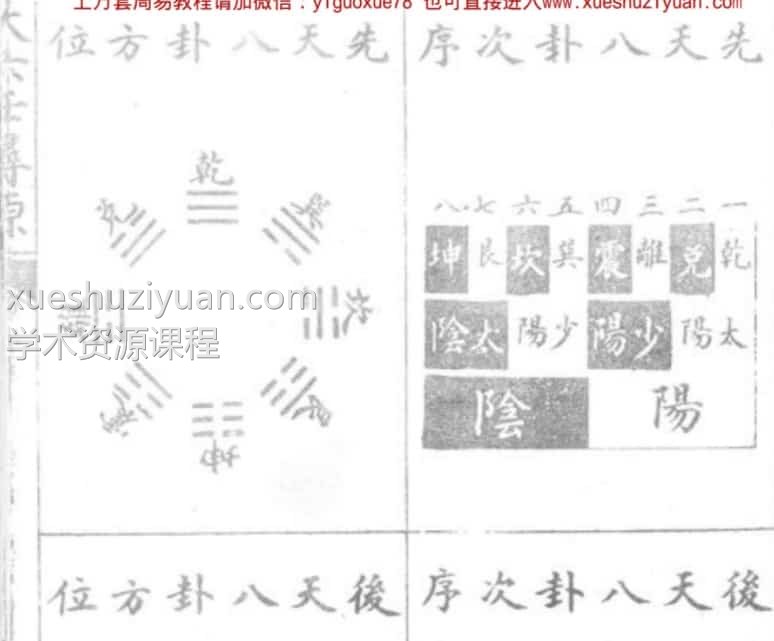 上万套周易教程请加微信：yiguoxue78 也可直接进入www.xueshuziyuan.com
先天八卦次序
一二三四五六七八
乾兌離震巽坎艮坤
太陽少陽少陽太陰
陽陰
先天八卦方位
乾
兌
巽
坎
震
艮
坤
後天八卦次序
後天八卦方位
大六壬尋原
xueshuziyuan.com
学术资源课程